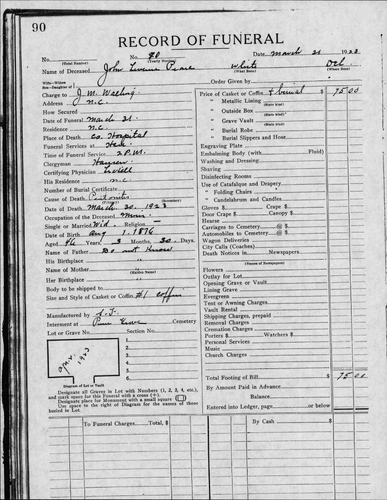 90
RECORD OF FUNERAL
No. 90 Date, March 21 1923
(Total Number) (Yearly Number)
Name of Deceased John White
Wife—Widow
Son—Daughter of Order Given by
Charge to J. M. Price of Casket or Coffin & burial $ 75.00
Address N.C. " Metallic Lining
(State Kind)
How Secured " Outside Box
(State Kind)
Date of Funeral March 21. " Grave Vault
(State Kind)
Residence N.C. " Burial Robe
(State Kind)
Place of Death Co. Hospital " Burial Slippers and Hose
Funeral Services at Engraving Plate
Time of Funeral Service 2 P.M. Embalming Body (with Fluid)
Clergyman Washing and Dressing
Certifying Physician Shaving
His Residence N.C. Disinfecting Rooms
Number of Burial Certificate Use of Catafalque and Drapery
Cause of Death " Folding Chairs
Date of Death March 20, 1923 " Candelabrum and Candles
Occupation of the Deceased Gloves $ Crape $
Single or Married Wid. Religion Door Crape $ Canopy $
Date of Birth Aug 1. 1876 Hearse
Aged 46 Years 3 Months 20 Days Carriages to Cemetery @ $
Automobiles to Cemetery @ $
Name of Father Do not Know Wagon Deliveries
His Birthplace City Calls (Coaches)
Name of Mother Death Notices in Newspapers
(Maiden Name) (Names of Newspapers)
Her Birthplace Flowers
Body to be shipped to Outlay for Lot
Size and Style of Casket or Coffin #1 coffin Opening Grave or Vault
Lining Grave
Evergreen
Manufactured by Tent or Awning Charges
Interment at Cemetery Vault Rental
Lot or Grave No. Section No. Shipping Charges, prepaid
Removal Charges
Cremation Charges
Porters $ Watchers $
Personal Services
Music
Church Charges
1.
2.
3.
4.
5.
Diagram of Lot or Vault
Designate all Graves in Lot with Numbers (1, 2, 3, 4, etc.), and mark space for this Funeral with a cross (+).
Designate place for Monument with a small square
Use space to right of Diagram for the names of those buried in Lot.
Total Footing of Bill $ 75.00
By Amount Paid in Advance
Balance
Entered into Ledger, page or below
To Funeral Charges Total, $ By Cash $